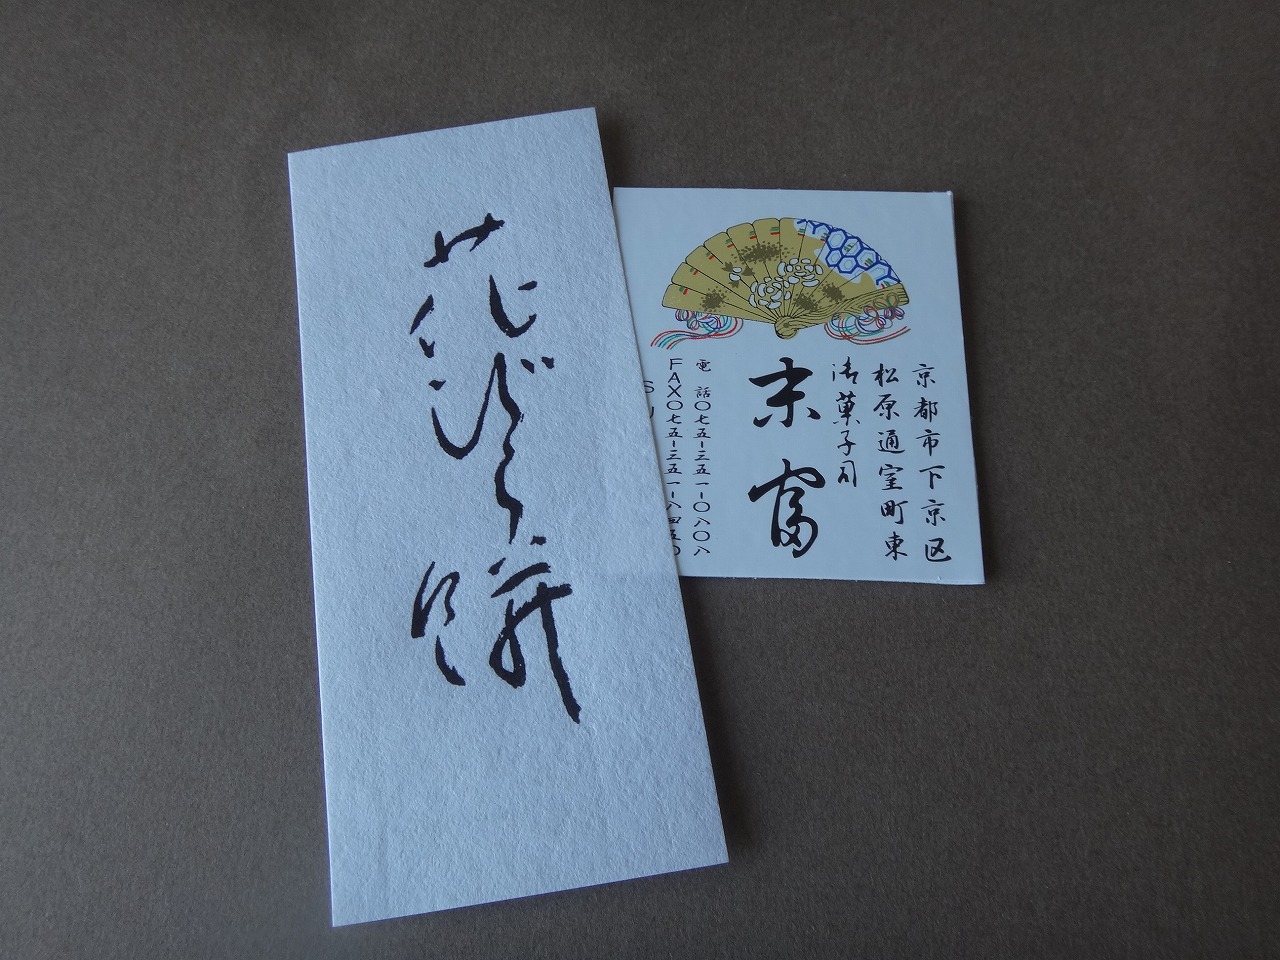 花びら餅
京都市下京区
松原通室町東
御菓子司
末富
電話〇七五-三五一-〇八〇八
FAX〇七五-三五一-八四五〇